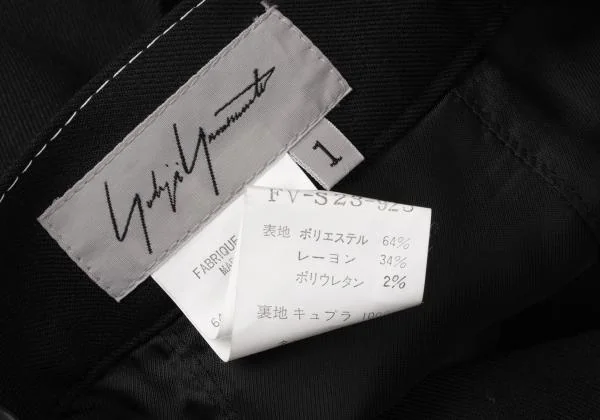 Yohji Yamamoto
1
FV-S23-923
表地 ポリエステル 64%
レーヨン 34%
ポリウレタン 2%
裏地 キュプラ
FABRIQUE